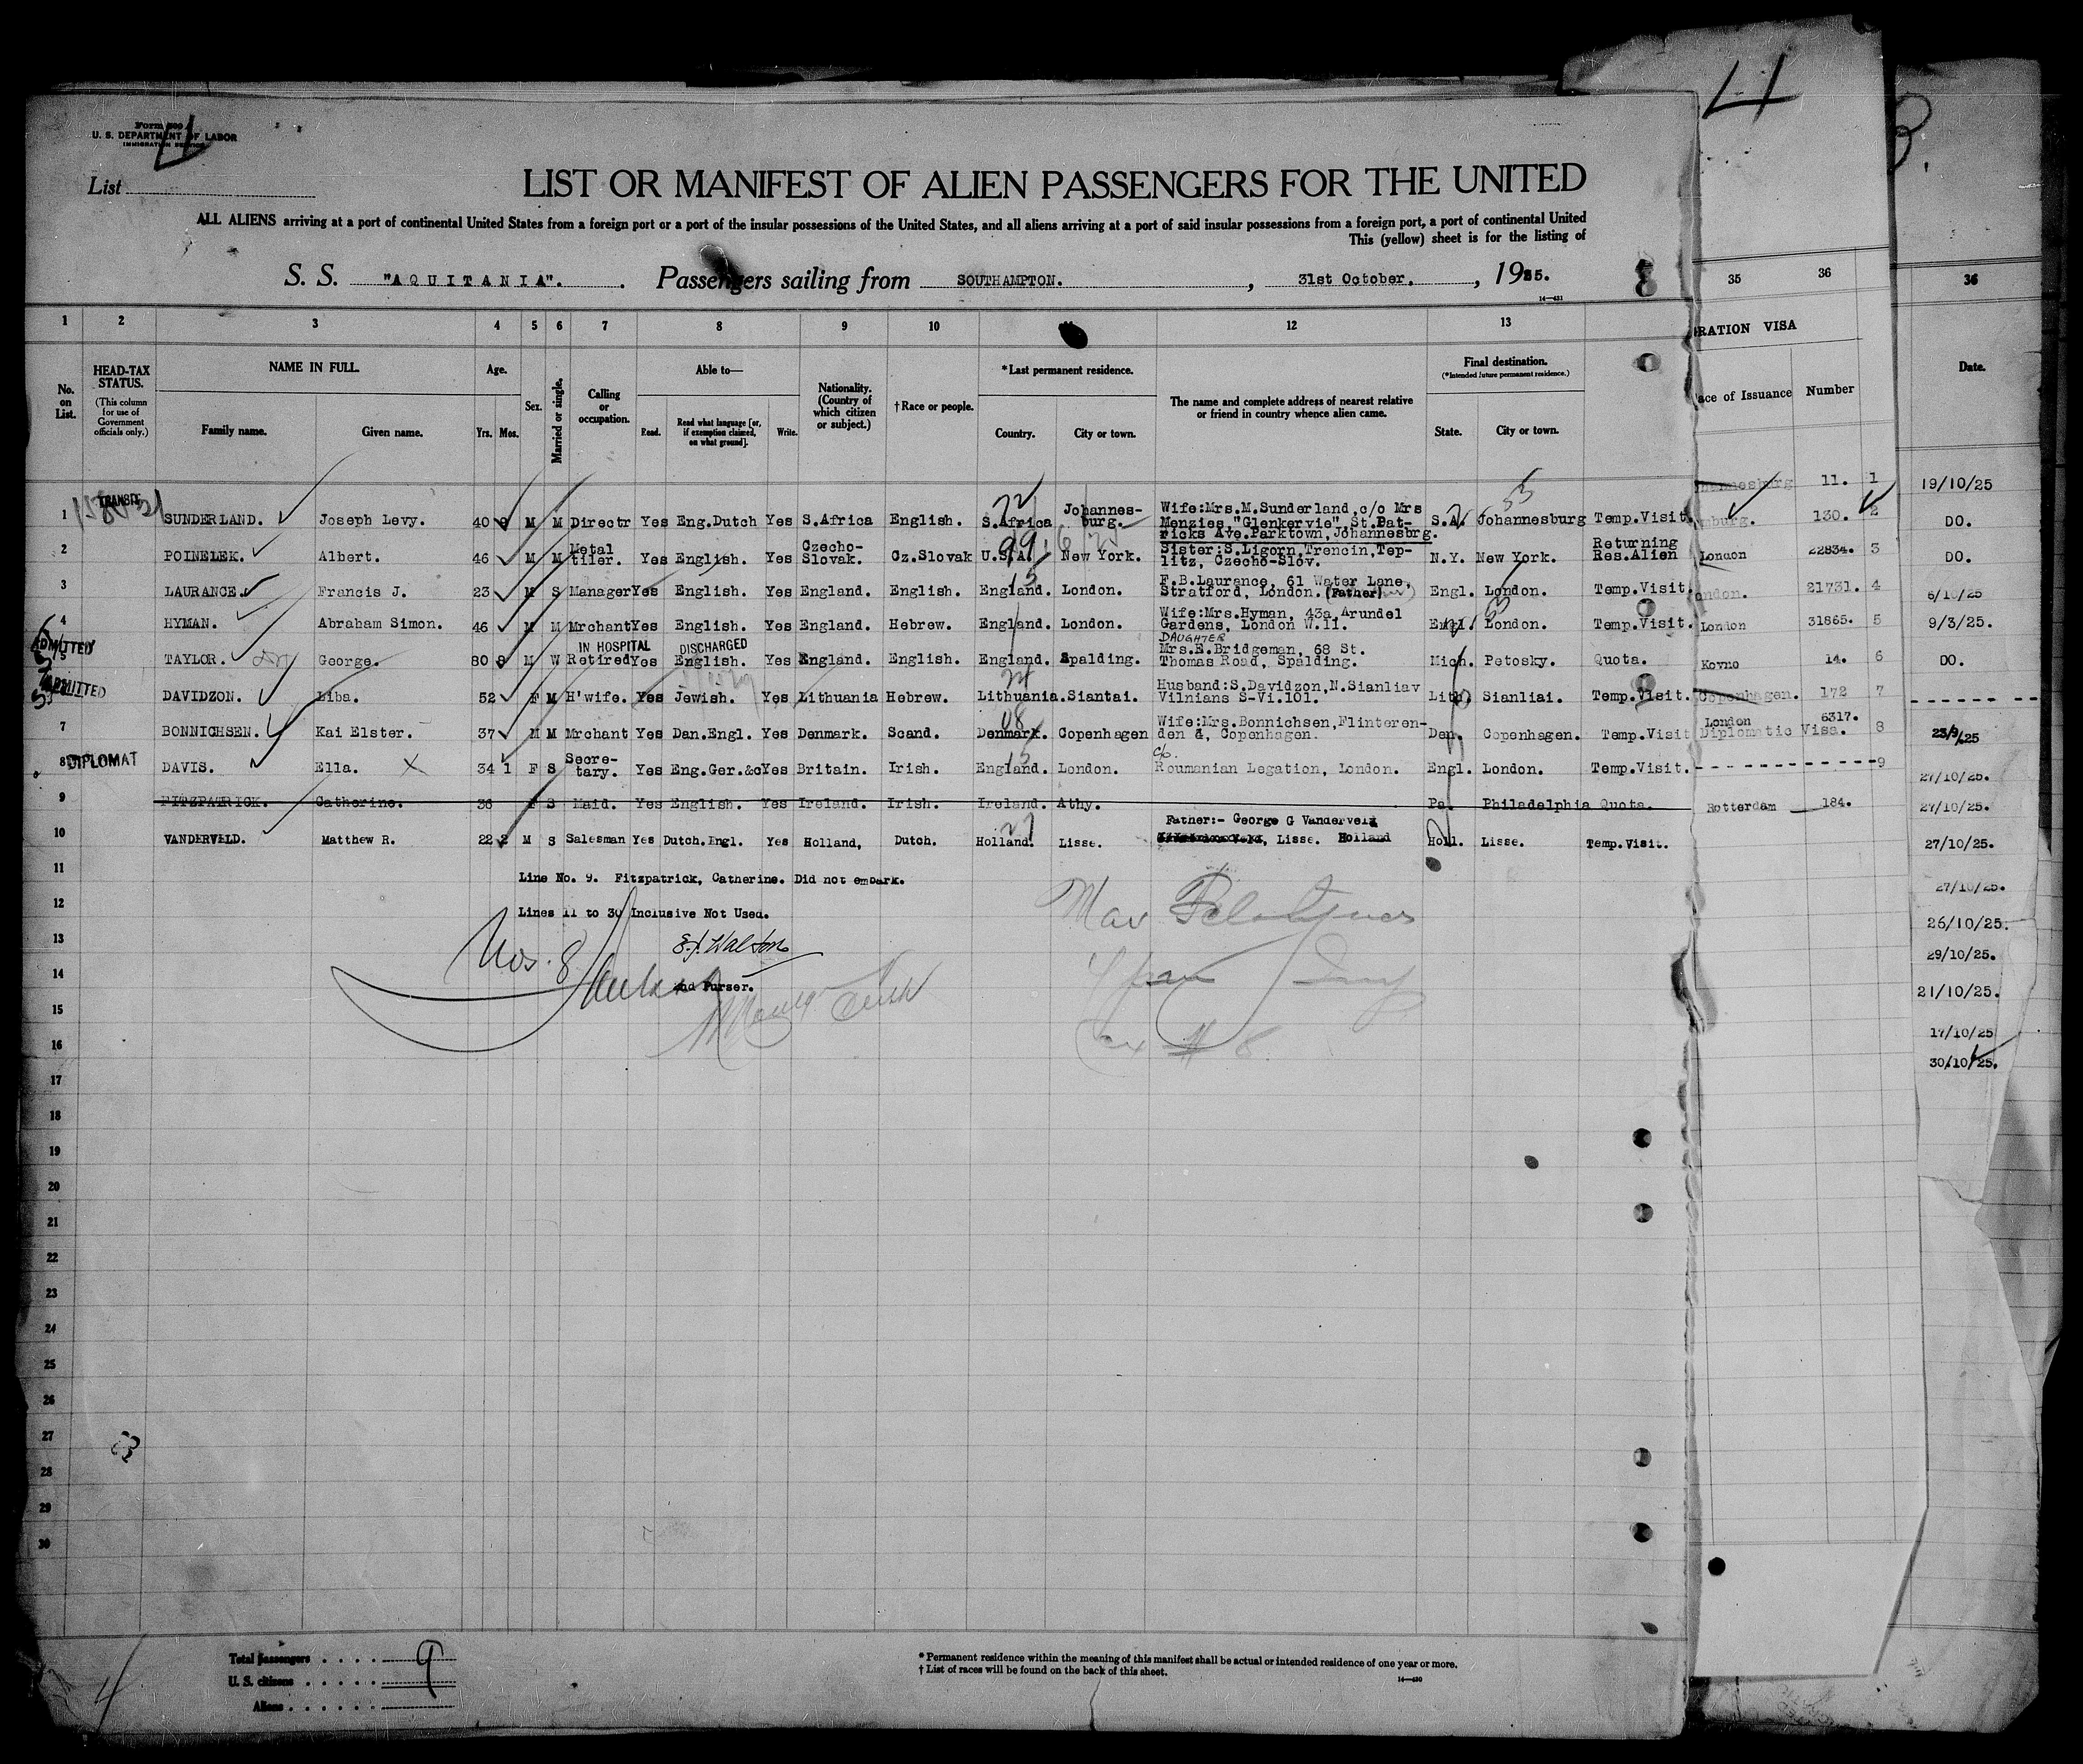 Form 500
U. S. DEPARTMENT OF LABOR
IMMIGRATION SERVICE
4
4
3.
List
LIST OR MANIFEST OF ALIEN PASSENGERS FOR THE UNITED
ALL ALIENS arriving at a port of continental United States from a foreign port or a port of the insular possessions of the United States, and all aliens arriving at a port of said insular possessions from a foreign port, a port of continental United
This (yellow) sheet is for the listing of
S. S. "AQUITANIA". Passengers sailing from SOUTHAMPTON. , 31st October. , 1925.
8
14—431
1 2 3 4 5 6 7 8 9 10 11 12 13 35 36 36
No. on List.
HEAD-TAX STATUS.
(This column for use of Government officials only.)
NAME IN FULL.
Family name. Given name.
Age.
Yrs. Mos.
Sex.
Married or single.
Calling or occupation.
Able to—
Read. Read what language [or, if exemption claimed, on what ground]. Write.
Nationality. (Country of which citizen or subject.)
†Race or people.
*Last permanent residence.
Country. City or town.
The name and complete address of nearest relative or friend in country whence alien came.
Final destination.
(*Intended future permanent residence.)
State. City or town.
RATION VISA
ace of Issuance Number
Date.
TRANSIT
1 SUNDERLAND. Joseph Levy. 40 M M Directr Yes Eng.Dutch Yes S.Africa English. S.Africa Johannes-burg. Wife:Mrs.M.Sunderland,c/o Mrs Menzies,"Glenkervie",St.Pat-ricks Ave.Parktown,Johannesbrg. S.A. Johannesburg Temp.Visit.
2 POINELEK. Albert. 46 M M Metal tiler. Yes English. Yes Czecho-Slovak. Cz.Slovak U.S.A. New York. Sister:S.Ligorn,Trencin,Tep-litz, Czecho-Slov. N.Y. New York. Returning Res.Alien
3 LAURANCE. Francis J. 23 M S Manager Yes English. Yes England. English. England. London. F.B.Laurance, 61 Water Lane, Stratford, London. (Father) Engl. London. Temp.Visit.
4 HYMAN. Abraham Simon. 46 M M Mrchant Yes English. Yes England. Hebrew. England. London. Wife:Mrs.Hyman, 43a Arundel Gardens, London W.11. Engl. London. Temp.Visit.
ADMITTED IN HOSPITAL DISCHARGED DAUGHTER
5 TAYLOR. George. 80 M W Retired Yes English. Yes England. English. England. Spalding. Mrs.E.Bridgeman, 68 St. Thomas Road, Spalding. Mich. Petosky. Quota.
ADMITTED
DAVIDZON. Liba. 52 F M H'wife. Yes Jewish. Yes Lithuania Hebrew. Lithuania. Siantai. Husband:S.Davidzon,N.Sianliav Vilnians S-Vi.101. Lith. Sianliai. Temp.Visit.
7 BONNICHSEN. Kai Elster. 37 M M Mrchant Yes Dan.Engl. Yes Denmark. Scand. Denmark. Copenhagen Wife:Mrs.Bonnichsen,Flinteren-den 4, Copenhagen. Den. Copenhagen. Temp.Visit
8 DIPLOMAT DAVIS. Ella. X 34 1 F S Secre-tary. Yes Eng.Ger.&c Yes Britain. Irish. England. London. c/o. Roumanian Legation, London. Engl. London. Temp.Visit.
9 FITZPATRICK. Catherine. 36 F S Maid. Yes English. Yes Ireland. Irish. Ireland. Athy. Pa. Philadelphia Quota.
10 VANDERVELD. Matthew R. 22 2 M S Salesman Yes Dutch.Engl. Yes Holland, Dutch. Holland. Lisse. Father:- George G Vanderveld , Lisse. Holland Holl. Lisse. Temp.Visit.
11 Line No. 9. Fitzpatrick, Catherine. Did not embark.
12 Lines 11 to 30 Inclusive Not Used.
13
2nd Purser.
14
15
16
17
18
19
20
21
22
23
24
25
26
27
28
29
30
11. 1
burg. 130. 2
London 22834. 3
ondon. 21731. 4
London 31865. 5
Kovno 14. 6
Copenhagen. 172 7
London 6317.
Diplomatic Visa. 8
9
Rotterdam 184.
19/10/25
DO.
DO.
6/10/25
9/3/25.
DO.
23/9/25
27/10/25.
27/10/25.
27/10/25.
27/10/25.
26/10/25.
29/10/25.
21/10/25.
17/10/25
30/10/25.
Total passengers 9
U. S. citizens
Aliens
* Permanent residence within the meaning of this manifest shall be actual or intended residence of one year or more.
† List of races will be found on the back of this sheet.
14—430
4